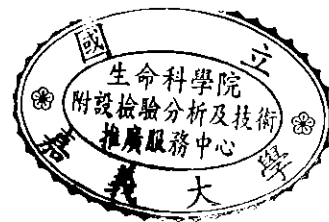 國立嘉義大學
生命科學院
附設檢驗分析及技術
推廣服務中心